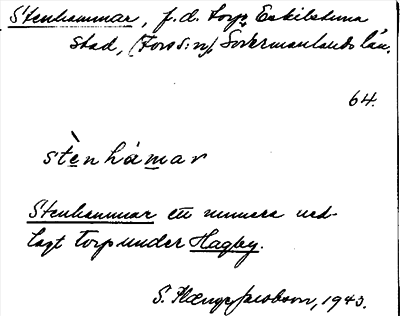 Stenhammar, f.d. torp, Eskilstuna
stad, (Fors s:n), Södermanlands län.
64.
stènhámar
Stenhammar ett numera ned-
lagt torp under Hagby.
S. Jacobson, 1943.